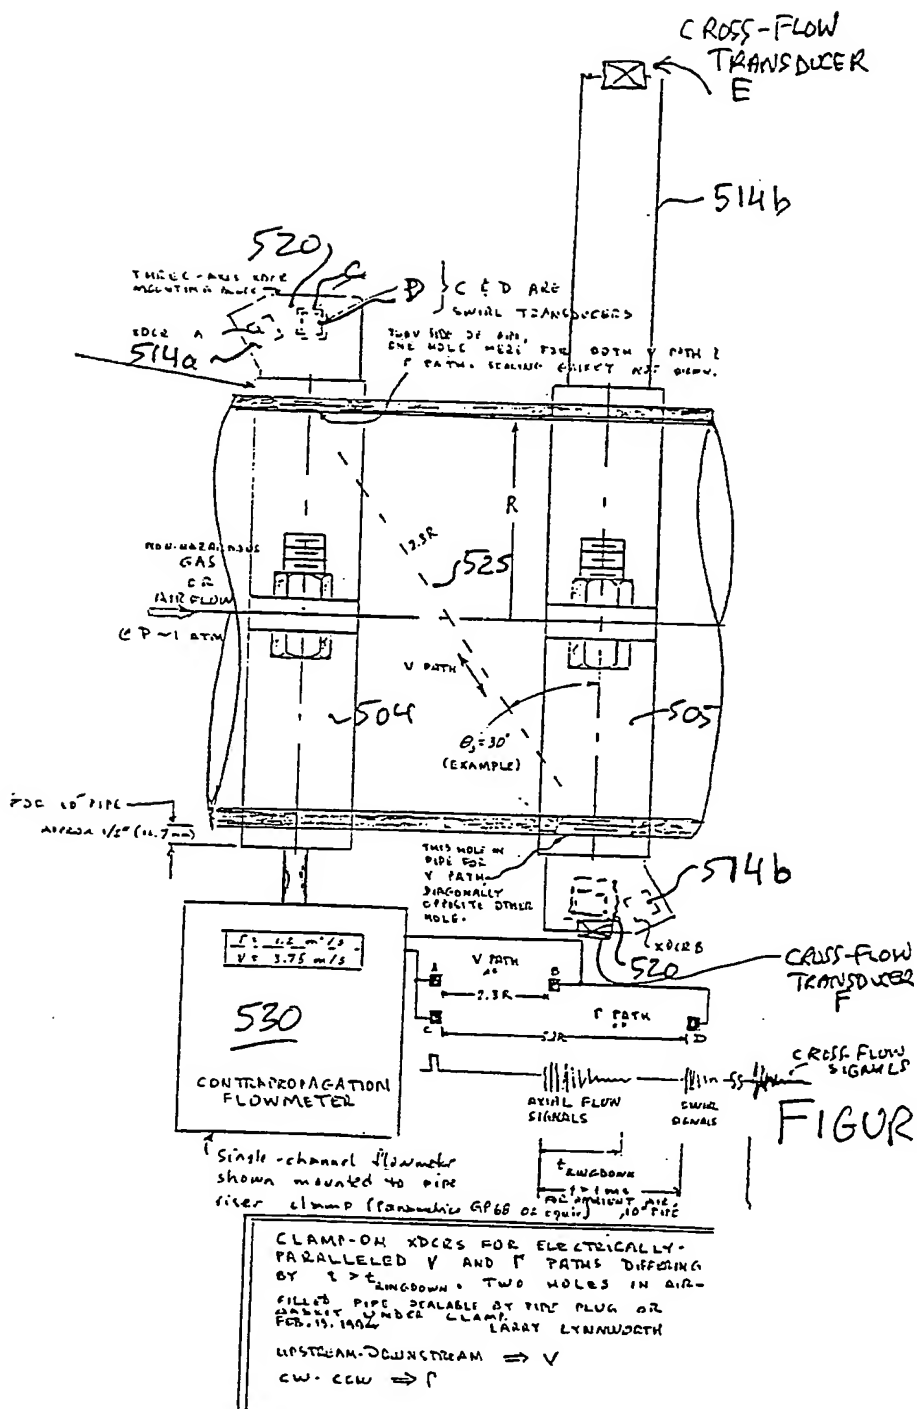 CROSS-FLOW
TRANSDUCER
E
514b
520
C
THREE-AXIS XDCR
MOUNTING BLOCK
D } C & D ARE
SWIRL TRANSDUCERS
XDCR A
514a
SIDE OF PIPE,
ONE HOLE HERE FOR BOTH V PATH &
Γ PATH. SEALING NOT
R
2.3R
525
NON-HAZARDOUS
GAS
OR
AIR FLOW
@ P ~ 1 ATM
V PATH
504
505
θ₃ = 30°
(EXAMPLE)
FOR 10" PIPE
APPROX 1/2" (12.7 mm)
THIS HOLE IN
PIPE FOR
V PATH
DIAGONALLY
OPPOSITE OTHER
HOLE.
514b
XDCR B
520
CROSS-FLOW
TRANSDUCER
F
Γ = 1.2 m²/s
V = 3.75 m/s
V PATH
A
B
2.3R
Γ PATH
C
D
530
CONTRAPROPAGATION
FLOWMETER
CROSS-FLOW
SIGNALS
AXIAL FLOW
SIGNALS
SWIRL
SIGNALS
FIGUR
t RINGDOWN
FOR AMBIENT AIR
10" PIPE
Single-channel flowmeter
shown mounted to pipe
riser clamp (Panametrics GP68 or equiv)
CLAMP-ON XDCRS FOR ELECTRICALLY-
PARALLELED V AND Γ PATHS DIFFERING
BY t > t RINGDOWN. TWO HOLES IN AIR-
FILLED PIPE SEALABLE BY PIPE PLUG OR
GASKET UNDER CLAMP.
FEB. LARRY LYNNWORTH
UPSTREAM-DOWNSTREAM ⇒ V
CW-CCW ⇒ Γ